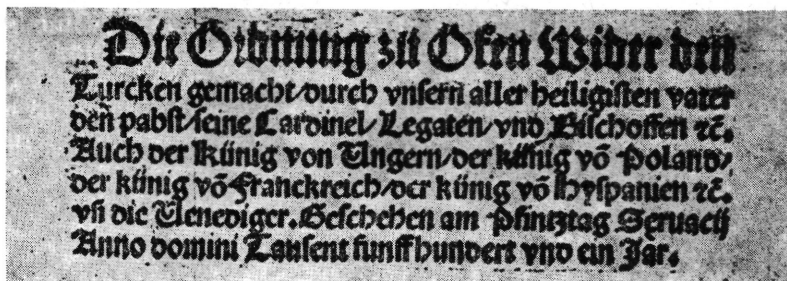 Die Ordnung zu Ofen Wider den
Turcken gemacht/durch vnsern aller heiligisten vater
den pabst/seine Cardinel/Legaten/vnd Bischoffen ꝛc̄.
Auch der Künig von Ungern/der künig vō Poland/
der künig vō Franckreich/der künig vō Hyspanien ꝛc̄.
vn̄ die Venediger. Geschehen am Pfintztag Seruacij
Anno domini Tausent funffhundert vnd ein Jar.